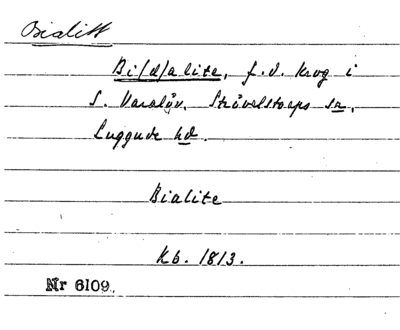 Bialitt
Bi/d/alite, f.d. krog i
S. Varalöv, Strövelstorps sn,
Luggude hd.
Bialite
Kb. 1813.
Nr 6109.